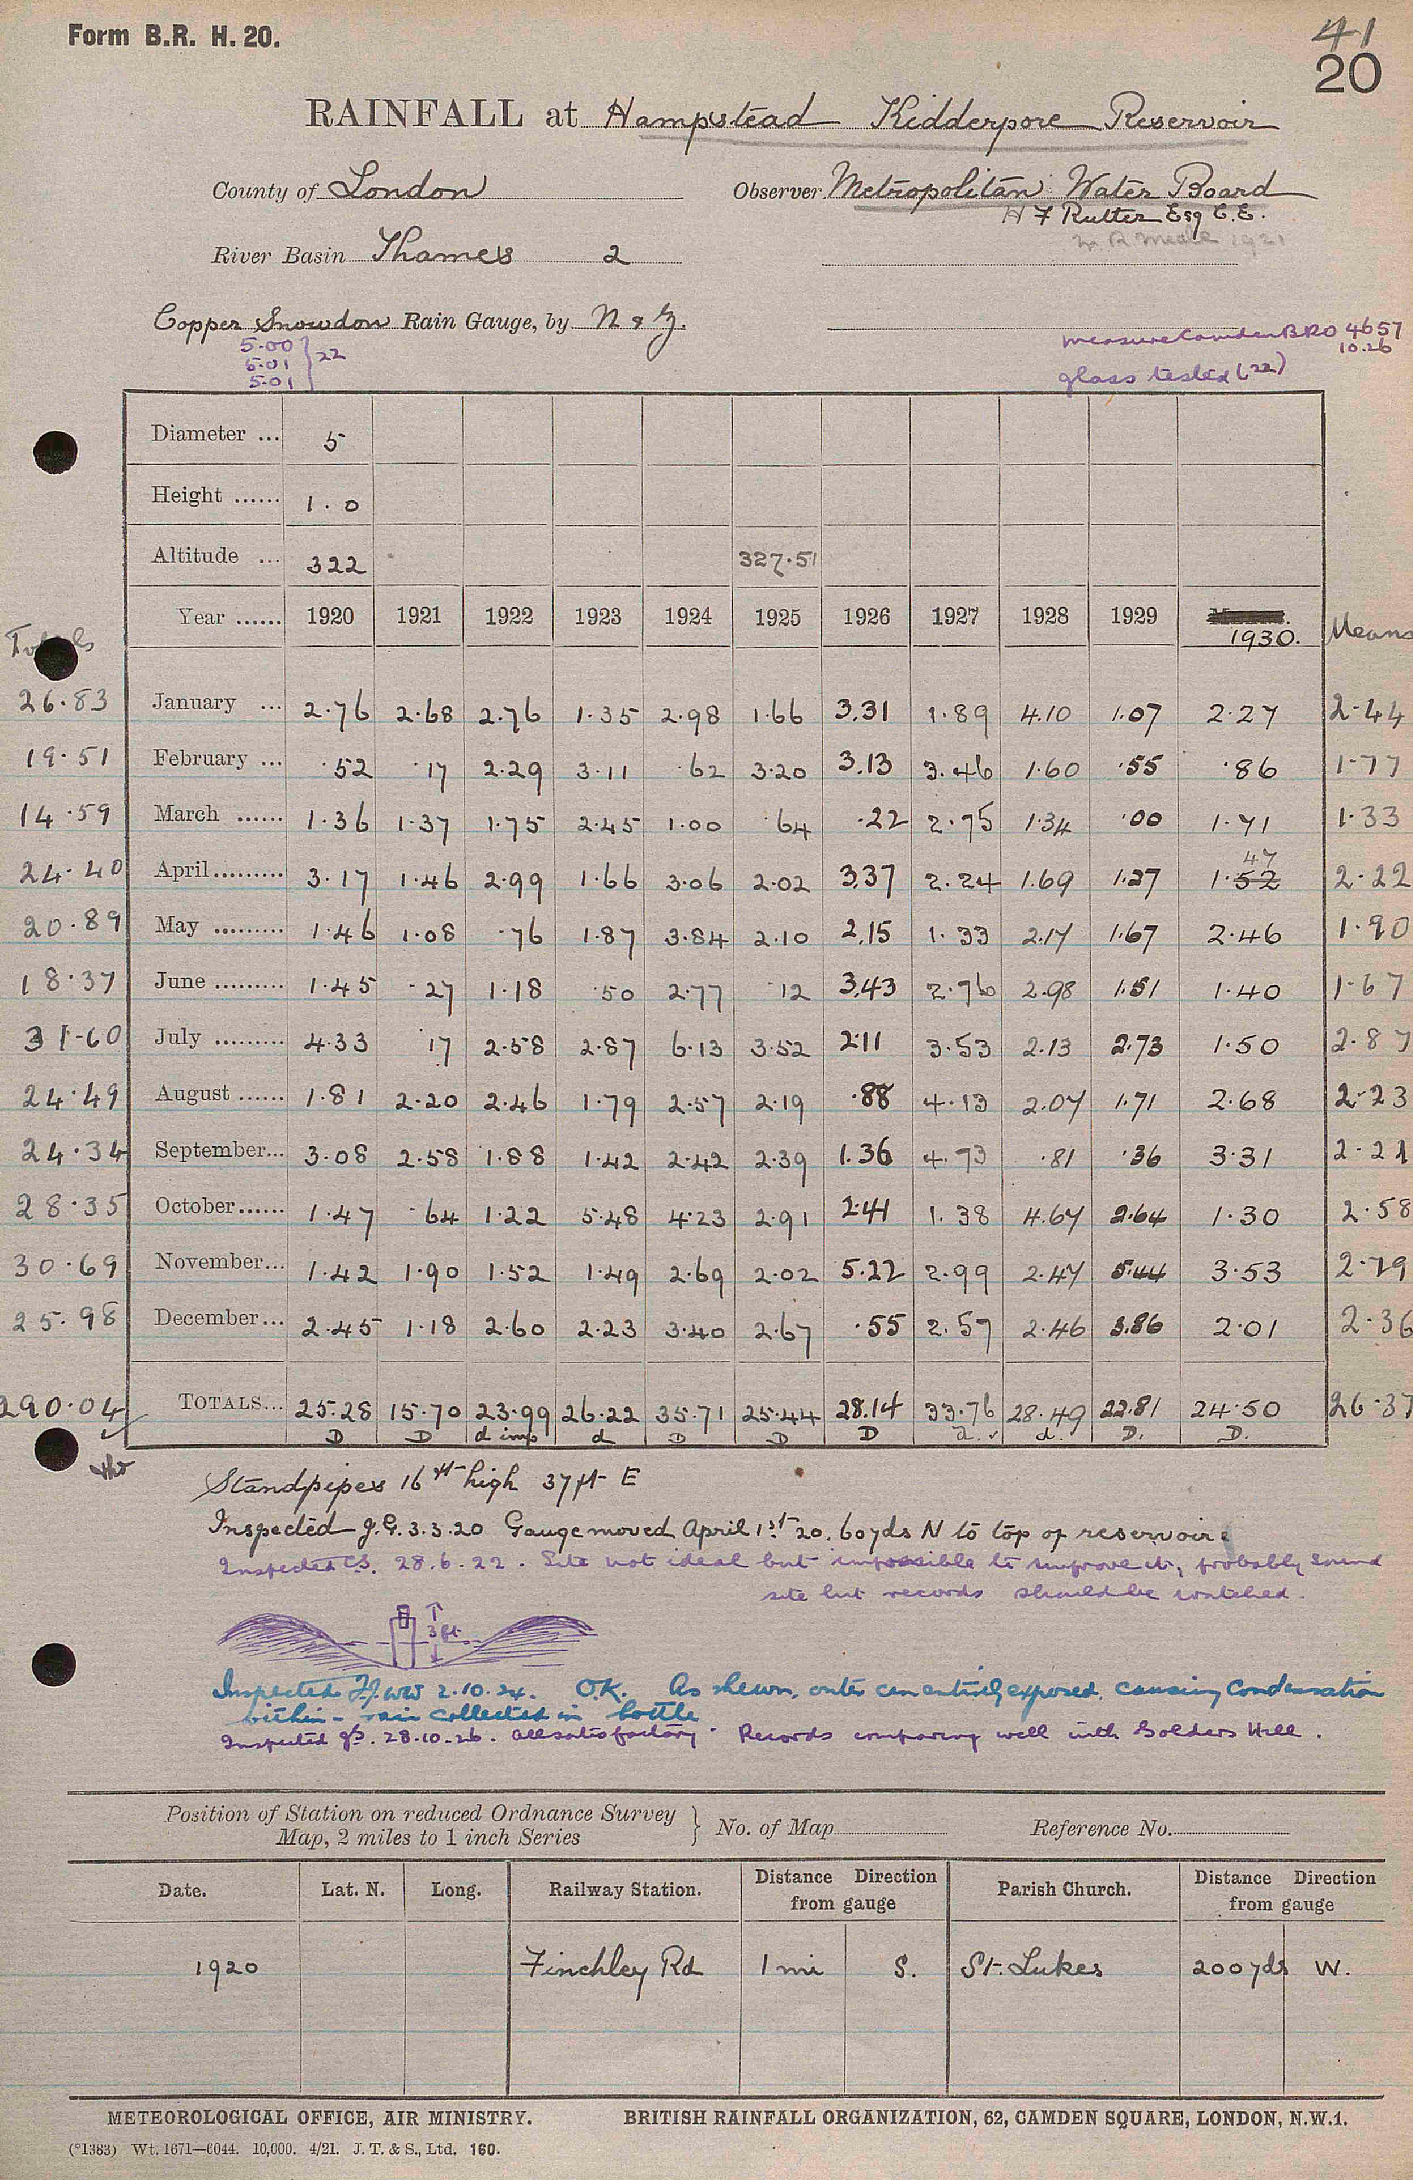 Form B.R. H. 20.
41
20
RAINFALL at Hampstead Kidderpore Reservoir
County of London Observer Metropolitan Water Board
H F Rutter Esq C.E.
1921
River Basin Thames 2
Copper Snowdon Rain Gauge, by N & Z.
5.00
5.01 } 22
5.01
measure Camden BRO 4657
10.26
glass tested (22)
Diameter ... 5
Height ...... 1.0
Altitude ... 322 327.51
Year ...... 1920 1921 1922 1923 1924 1925 1926 1927 1928 1929 1930. Means
Totals
26.83 January ... 2.76 2.68 2.76 1.35 2.98 1.66 3.31 1.89 4.10 1.07 2.27 2.44
19.51 February ... .52 .17 2.29 3.11 .62 3.20 3.13 3.46 1.60 .55 .86 1.77
14.59 March ...... 1.36 1.37 1.75 2.45 1.00 .64 .22 2.75 1.34 .00 1.71 1.33
24.40 April......... 3.17 1.46 2.99 1.66 3.06 2.02 3.37 2.24 1.69 1.27 1.52 47 2.22
20.89 May ......... 1.46 1.08 .76 1.87 3.84 2.10 2.15 1.33 2.17 1.67 2.46 1.90
18.37 June ......... 1.45 .27 1.18 .50 2.77 .12 3.43 2.76 2.98 1.51 1.40 1.67
31.60 July ......... 4.33 .17 2.58 2.87 6.13 3.52 2.11 3.53 2.13 2.73 1.50 2.87
24.49 August ...... 1.81 2.20 2.46 1.79 2.57 2.19 .88 4.13 2.07 1.71 2.68 2.23
24.34 September... 3.08 2.58 1.88 1.42 2.42 2.39 1.36 4.73 .81 .36 3.31 2.21
28.35 October...... 1.47 .64 1.22 5.48 4.23 2.91 2.41 1.38 4.67 2.64 1.30 2.58
30.69 November... 1.42 1.90 1.52 1.49 2.69 2.02 5.22 2.99 2.47 5.44 3.53 2.79
25.98 December... 2.45 1.18 2.60 2.23 3.40 2.67 .55 2.57 2.46 3.86 2.01 2.36
290.04 TOTALS... 25.28 15.70 23.99 26.22 35.71 25.44 28.14 33.76 28.49 22.81 24.50 26.37
D D d imp d D D D d. d. D. D.
Standpipes 16 ft high 37 ft E
Inspected J.G. 3.3.20 Gauge moved April 1st 20. 60 yds N to top of reservoir.
Inspected C.S. 28.6.22. Site not ideal but impossible to improve it, probably sound
site but records should be watched.
3 ft.
Inspected 2.10.24. O.K. As shewn, outer can entirely exposed, causing condensation
within – rain collected in bottle
Inspected 28.10.26. All satisfactory. Records comparing well with Golders Hill.
Position of Station on reduced Ordnance Survey
Map, 2 miles to 1 inch Series } No. of Map Reference No.
Date. Lat. N. Long. Railway Station. Distance Direction from gauge Parish Church. Distance Direction from gauge
1920 Finchley Rd 1 mi S. St. Lukes 200 yds W.
METEOROLOGICAL OFFICE, AIR MINISTRY. BRITISH RAINFALL ORGANIZATION, 62, CAMDEN SQUARE, LONDON, N.W.1.
(*1383) Wt. 1671—6044. 10,000. 4/21. J. T. & S., Ltd. 160.